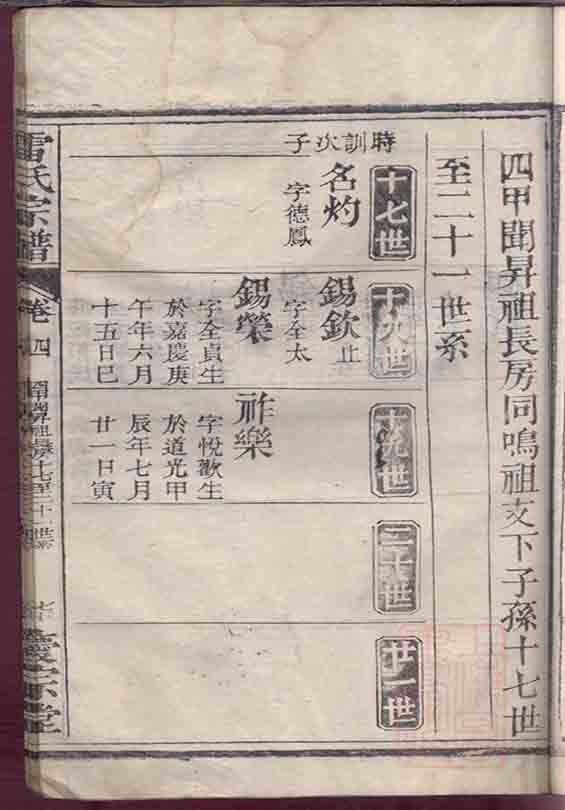 四甲聞昇祖長房同鳴祖支下子孫十七世
至二十一世系
十七世
時訓次子
名灼
字德鳳
十八世
錫欽止
字全太
錫榮
字全貞生
於嘉慶庚
午年六月
十五日巳
十九世
祚樂
字悅歡生
於道光甲
辰年七月
廿一日寅
二十世
廿一世
雷氏宗譜
卷四
聞昇祖
十七至二十一世系